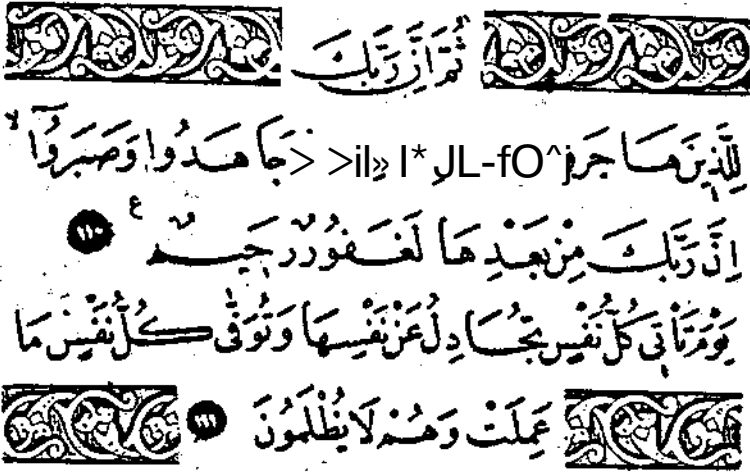 ثُمَّ اِنَّ رَبَّكَ
لِلَّذِينَ هَاجَرُ > >il» l* JL-fO^j جَاهَدُوا وَصَبَرُوٓا ۙ
اِنَّ رَبَّكَ مِنْ بَعْدِهَا لَغَفُورٌ رَحِيمٌ ع ١١٠
يَوْمَ تَأْتِى كُلُّ نَفْسٍ تُجَادِلُ عَنْ نَفْسِهَا وَتُوَفّٰى كُلُّ نَفْسٍ مَا
عَمِلَتْ وَهُمْ لَا يُظْلَمُونَ ١١١